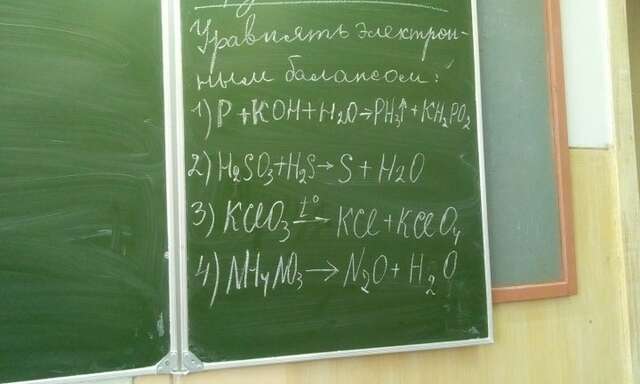 Уравнять электрон-
ным балансом:
1) P + KOH + H2O → PH3↑ + KH2PO2
2) H2SO3 + H2S → S + H2O
3) KClO3 t°→ KCl + KClO4
4) NH4NO3 → N2O + H2O